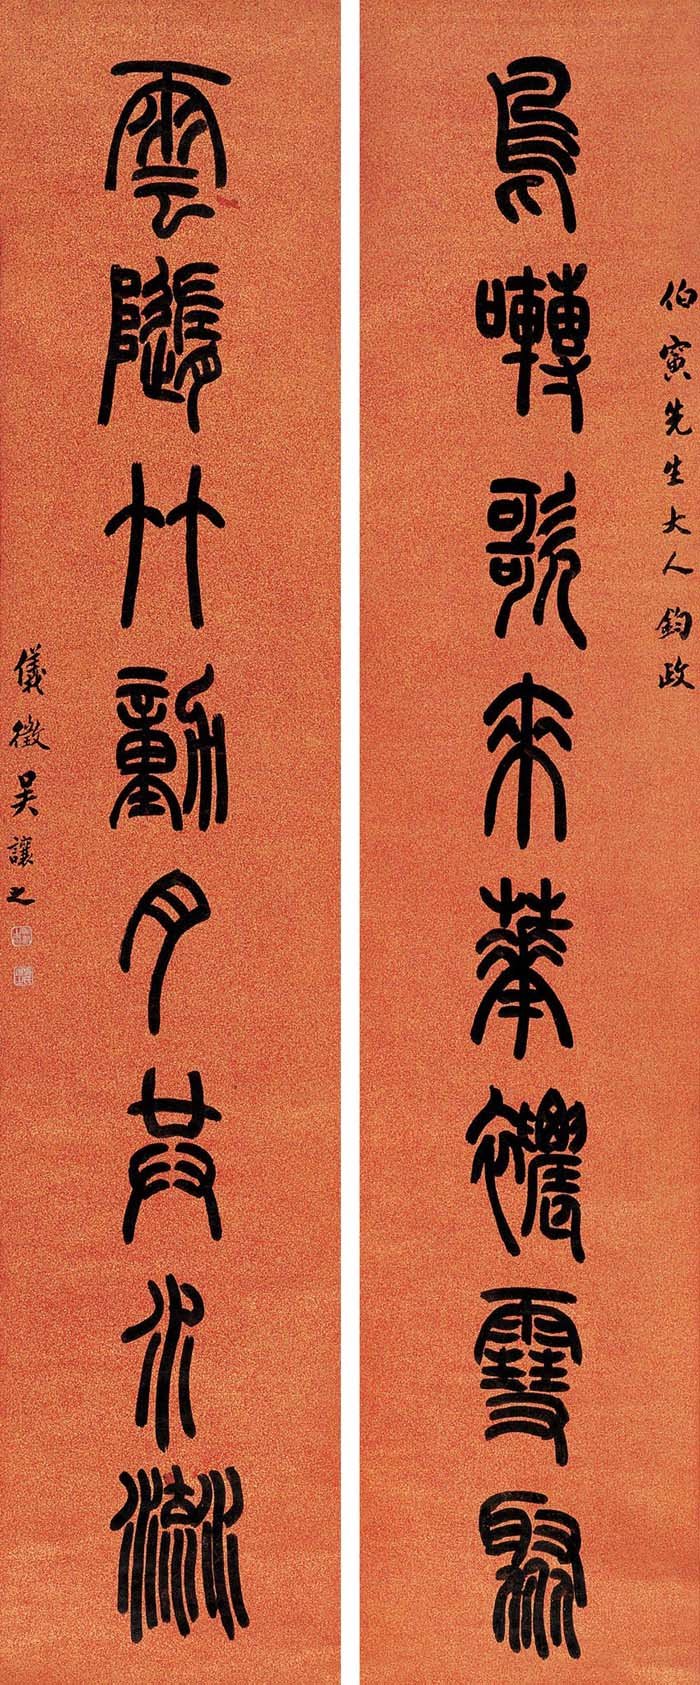 伯寅先生大人鈞政
鳥囀歌來華襛雪聚
雲隨竹動月共水流
儀徵吳讓之